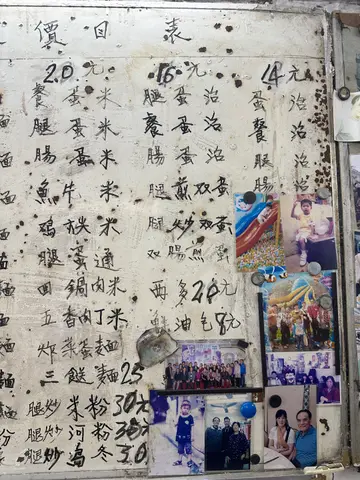 價目表
20元
餐蛋米
腿蛋米
腸蛋米
魚牛米
腿蛋通
回鍋肉米
五香肉丁米
炸菜蛋麵
三餸麵25
腿炒米粉30元
腿炒河粉30元
腿炒烏冬30
16元
腿蛋治
餐蛋治
腸蛋治
腿煎双蛋
腿炒双蛋
双腸煎蛋
西多20元
油包8元
14元
蛋治
餐治
腿治
腸治